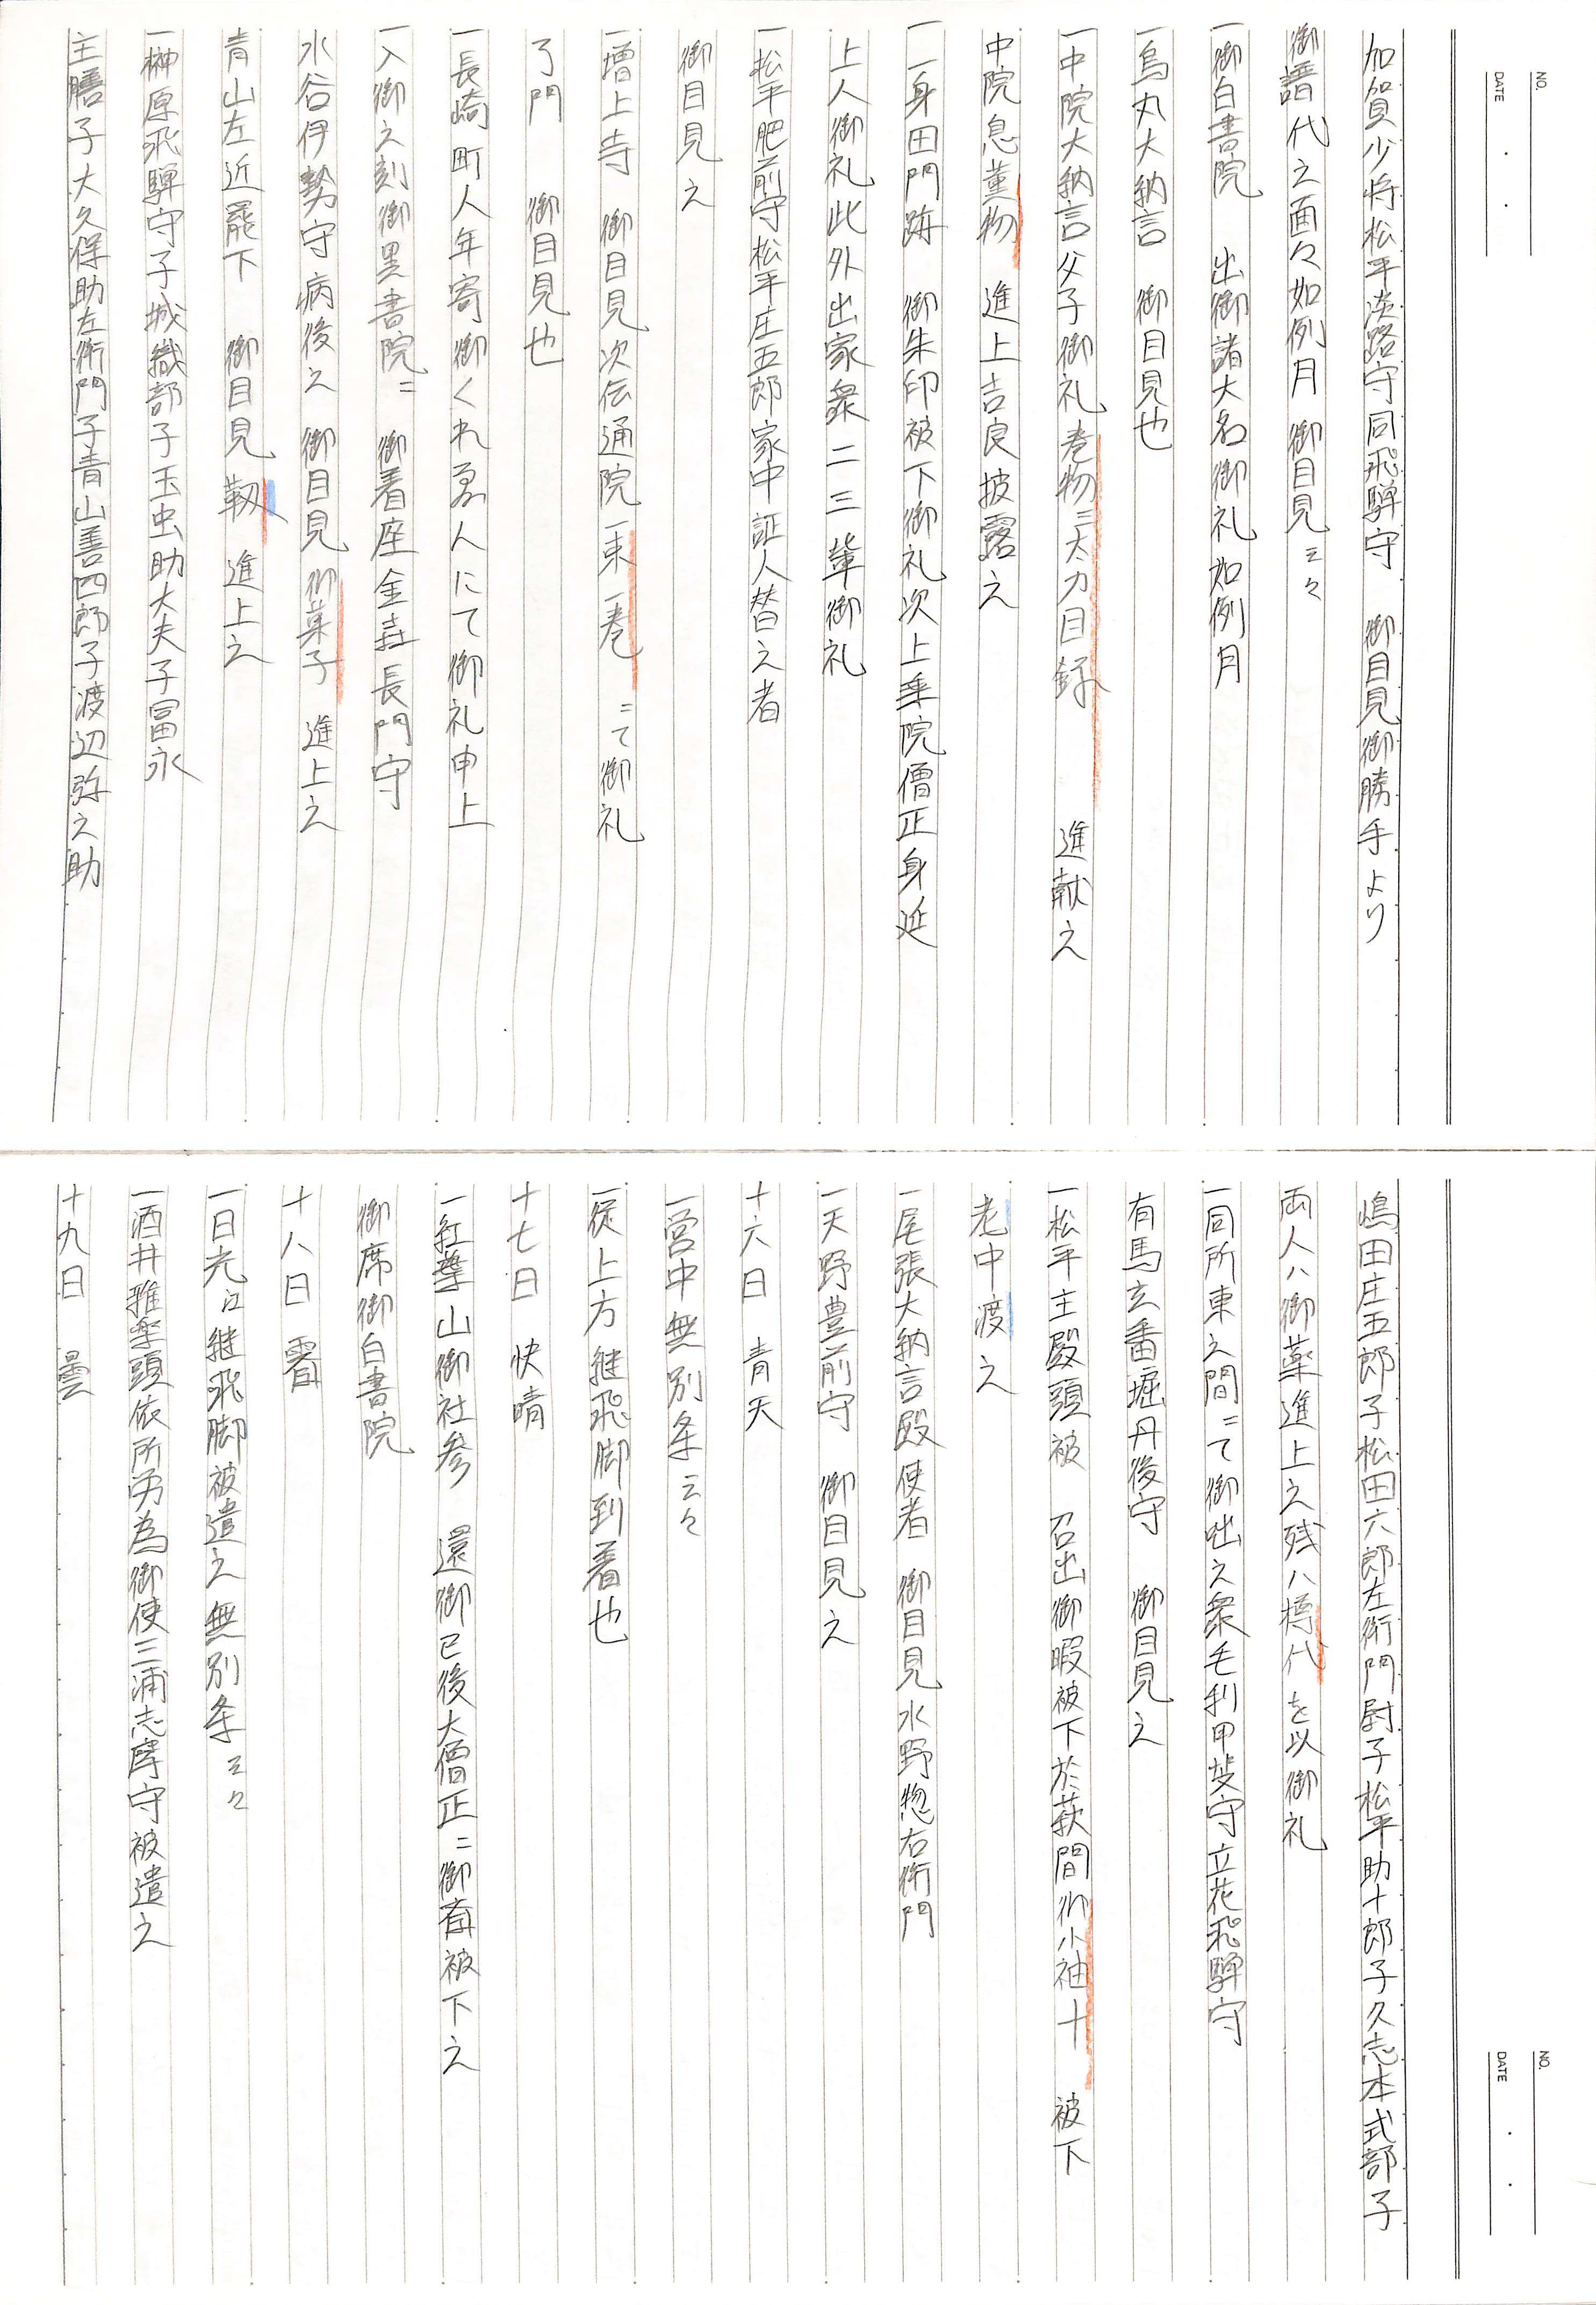 NO.
DATE
加賀少将松平淡路守同飛騨守 御目見御勝手より
御譜代之面々如例月 御目見云々
一御白書院 出御諸大名御礼如例月
一烏丸大納言 御目見也
一中院大納言父子御礼巻物三太刀目録 進献之
中院息薫物 進上吉良披露之
一一身田門跡 御朱印被下御礼次上乗院僧正身延
上人御礼此外出家衆二三輩御礼
一松平肥前守松平庄五郎家中証人替之者
御目見之
一増上寺 御目見次伝通院一束一巻ニて御礼
了門 御目見也
一長崎町人年寄御くれゐ人にて御礼申上
一入御之刻御黒書院ニ 御着座金森長門守
水谷伊勢守病後之 御目見御菓子 進上之
青山左近罷下 御目見 靱 進上之
一榊原飛騨守子城織部子玉虫助大夫子冨永
主膳子大久保助左衛門子青山善四郎子渡辺弥之助
NO.
DATE
嶋田庄五郎子松田六郎左衛門尉子松平助十郎子久志本式部子
両人ハ御薬進上之残ハ樽代を以御礼
一同所東之間ニて御咄之衆毛利甲斐守立花飛騨守
有馬玄番堀丹後守 御目見之
一松平主殿頭被 召出御暇被下於萩間御小袖十 被下
老中渡之
一尾張大納言殿使者 御目見水野惣右衛門
一天野豊前守 御目見之
十六日 青天
一営中無別条云々
一従上方継飛脚到着也
十七日 快晴
一紅葉山御社参 還御已後大僧正ニ御斎被下之
御席御白書院
十八日 霽
一日光江継飛脚被遣之無別条云々
一酒井雅楽頭依所労為御使三浦志摩守被遣之
十九日 曇